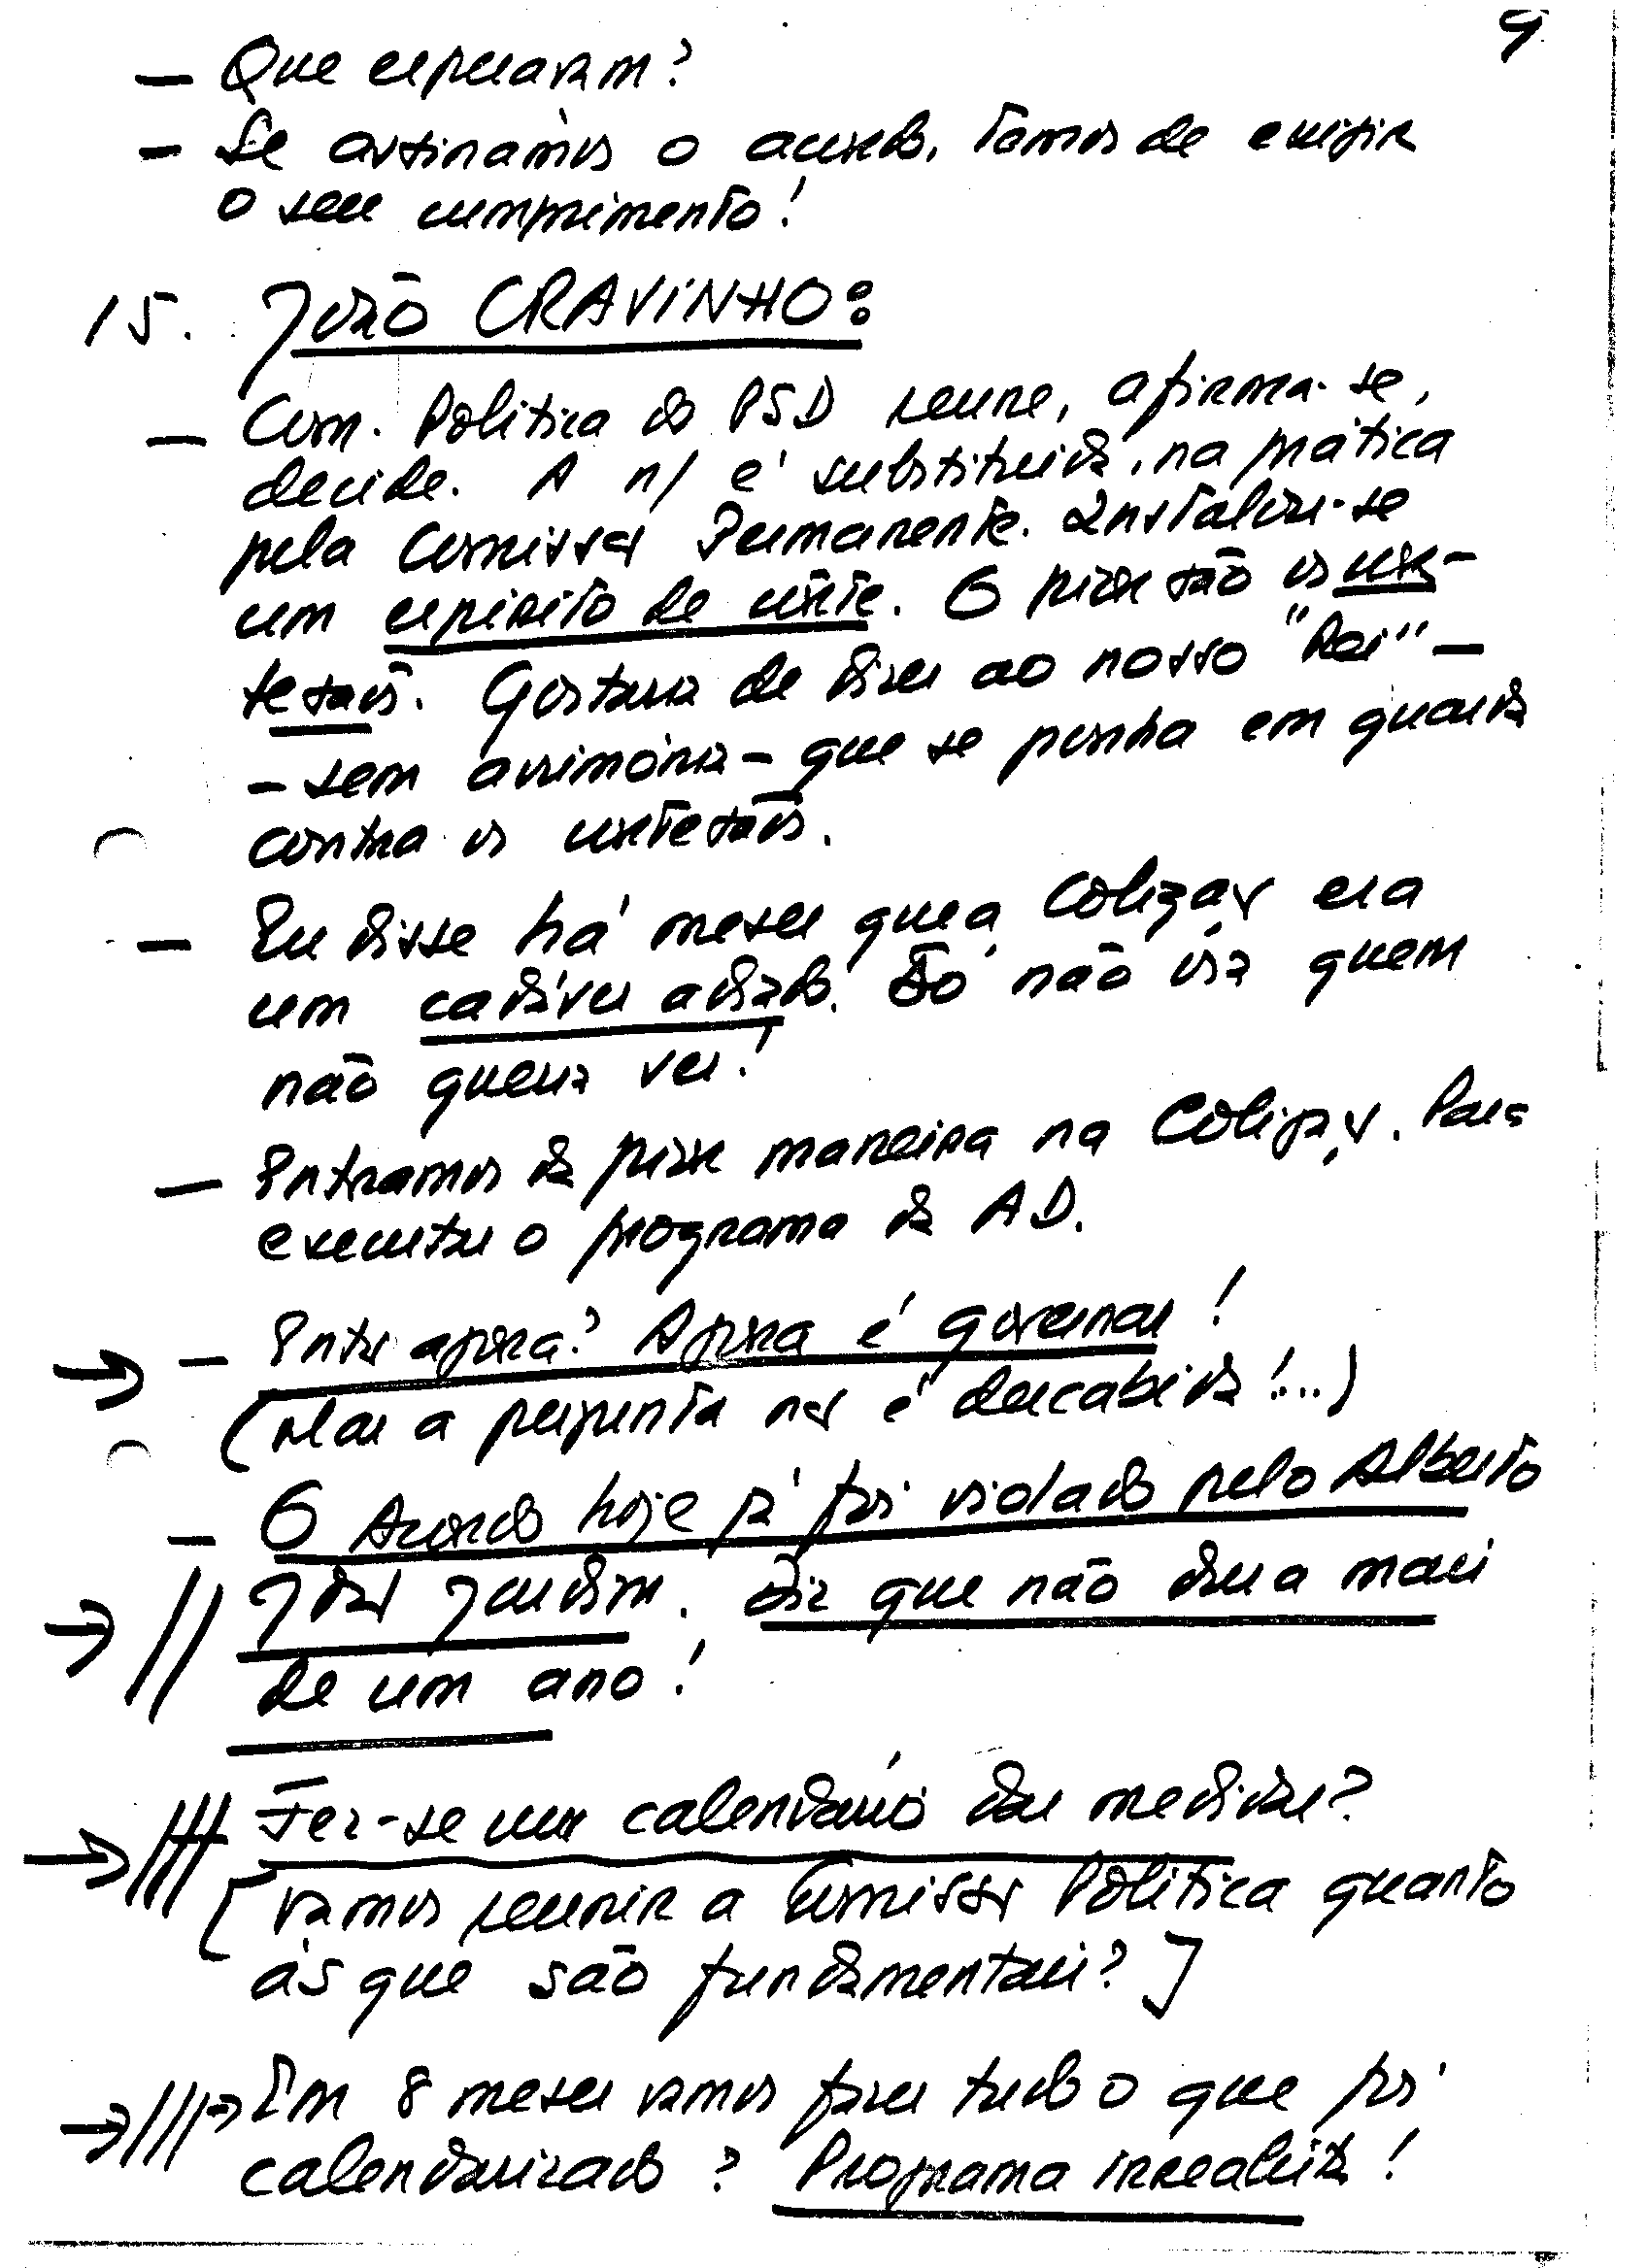 9
— Que esperavam?
— Se assinámos o acordo, temos de exigir
o seu cumprimento!
15. João CRAVINHO:
— Com. Política do PSD reune, afirma-se,
decide. A n/ é substituida, na prática
pela Comissão Permanente. Instalou-se
um espirito de corte. O pior são os cor-
tesãos. Gostava de dizer ao nosso "Rei" —
— sem acrimónia — que se ponha em guarda
contra os cortesãos.
— Eu disse há meses que a Coligação era
um cadáver adiado. Só não via quem
não queria ver!
— Entramos da pior maneira na Coligação. Para
executar o programa da AD.
→ — Então agora? Agora é governar!
(Mas a pergunta não é descabida!...)
— O Acordo hoje já foi violado pelo Alberto
→ // João Jardim. Diz que não dura mais
de um ano!
→ //// — Fez-se um calendário das medidas?
[Vamos reunir a Comissão Política quanto
às que são fundamentais?]
→ /// → Em 8 meses vamos fazer tudo o que foi
calendarizado? Programa irrealista!